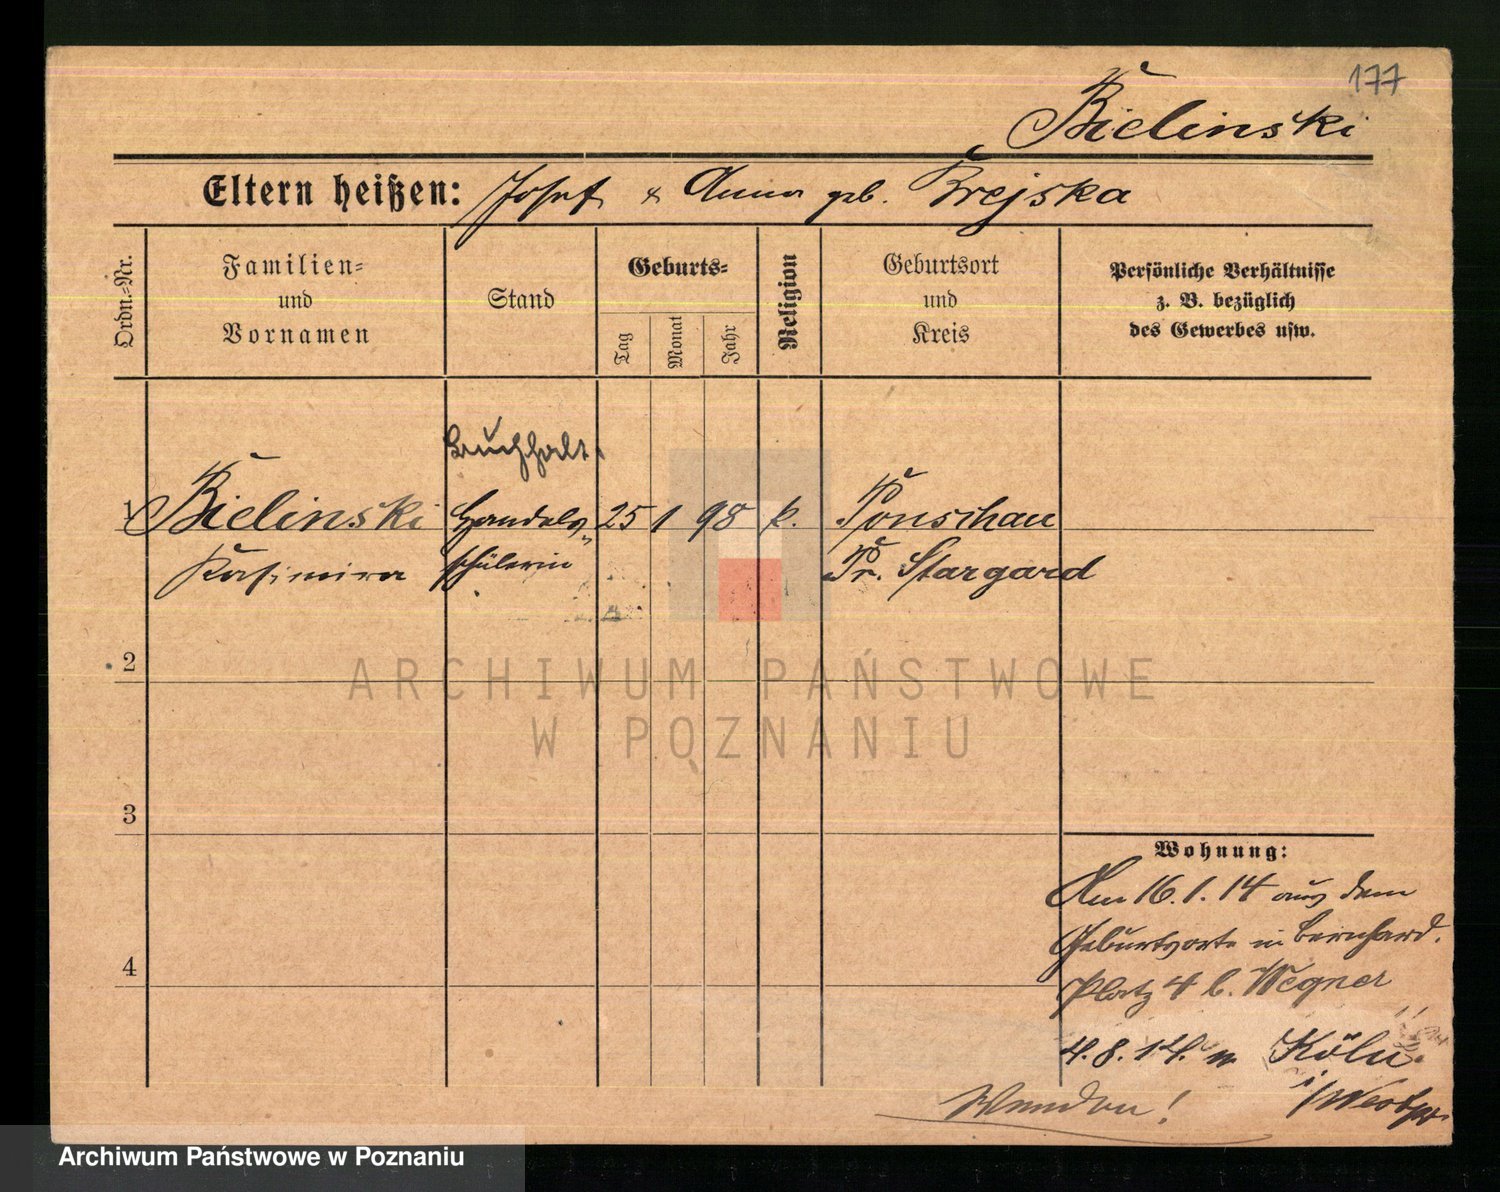 177
Bielinski
Eltern heißen: Josef & Anna geb. Brejska
Ordn.-Nr.
Familien-
und
Vornamen
Stand
Geburts-
Tag
Monat
Jahr
Religion
Geburtsort
und
Kreis
Persönliche Verhältnisse
z. B. bezüglich
des Gewerbes usw.
Buchhalt.
1 Bielinski Handels- 25 1 98 k. Ponschau
Kasimira schülerin Pr. Stargard
2
3
4
ARCHIWUM PAŃSTWOWE
W POZNANIU
Wohnung:
Am 16.1.14 aus dem
Geburtsorte in Bernhard.
Platz 4 b. Wegner
4.8.14. n Köln
i/Westpr.
Wenden!
Archiwum Państwowe w Poznaniu